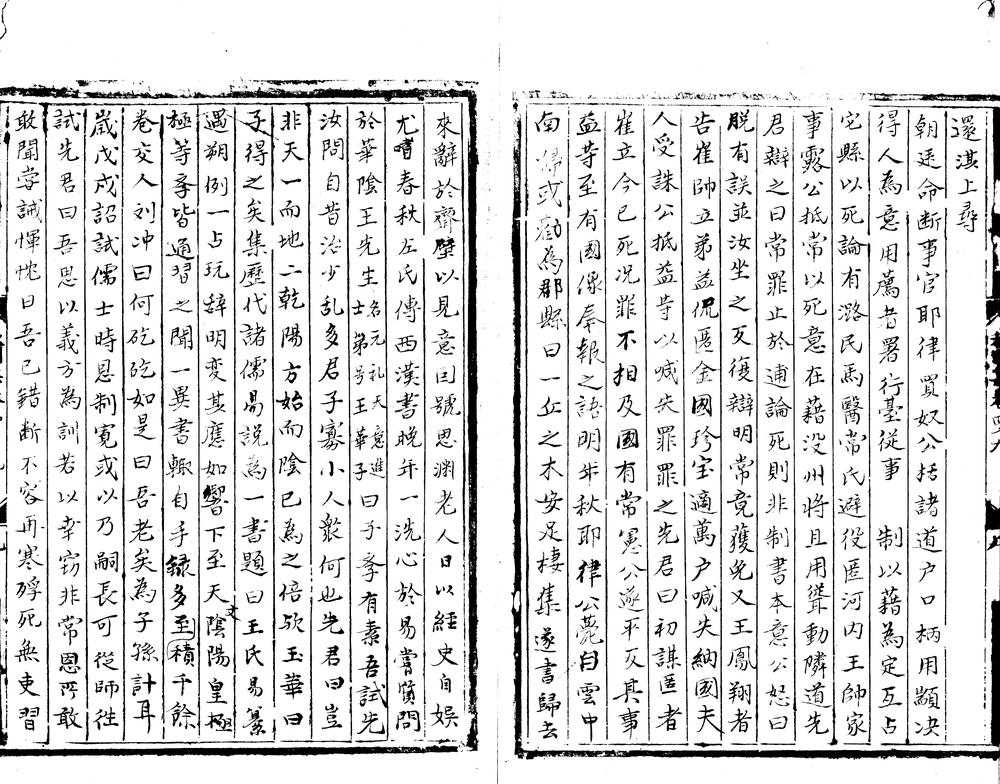 還淇上尋
朝廷命断事官耶律買奴公括諸道户口柄用顓决
得人為意用薦者署行臺從事　制以藉為定互占
它縣以死論有潞民馬醫常氏避役匿河内王帥家
事露公抵常以死意在藉没州將且用聳動隣道先
君辯之曰常罪止於逋論死則非制書本意公恕曰
脱有誤並汝坐之及復辯明常竟獲免又王鳳翔者
告崔帥立弟益侃匿金國珍宝適萬户喊失納國夫
人受誅公抵益等以喊失罪罪之先君曰初謀匿者
崔立今已死况罪不相及國有常憲公遂平反其事
益等至有國像奉報之語明年秋耶律公薨自雲中
南歸或勸為郡縣曰一丘之木安足棲集遂書歸去
來辭於齋壁以見意因號思渊老人日以經史自娱
尤嗜春秋左氏傳西漢書晚年一洗心於易嘗質問
於華陰王先生名元礼天意進士弟号王華子曰子孝有素吾試先
汝問自昔治少乱多君子寡小人衆何也先君曰豈
非天一而地二乾陽方始而陰已為之倍欤玉華曰
子得之矣集歷代諸儒易說為一書題曰王氏易纂
遇朔例一占玩辞明变其應如響下至天文陰陽皇極
極等孝皆通習之聞一異書輙自手録多至積千餘
卷交人刘冲曰何矻矻如是曰吾老矣為子孫計耳
歲戊戌詔試儒士時恩制寬或以乃嗣長可從師徃
試先君曰吾思以義方為訓若以幸窃非常恩所敢
敢聞嘗誡惲忱曰吾已錯断不容再寒殍死無吏習